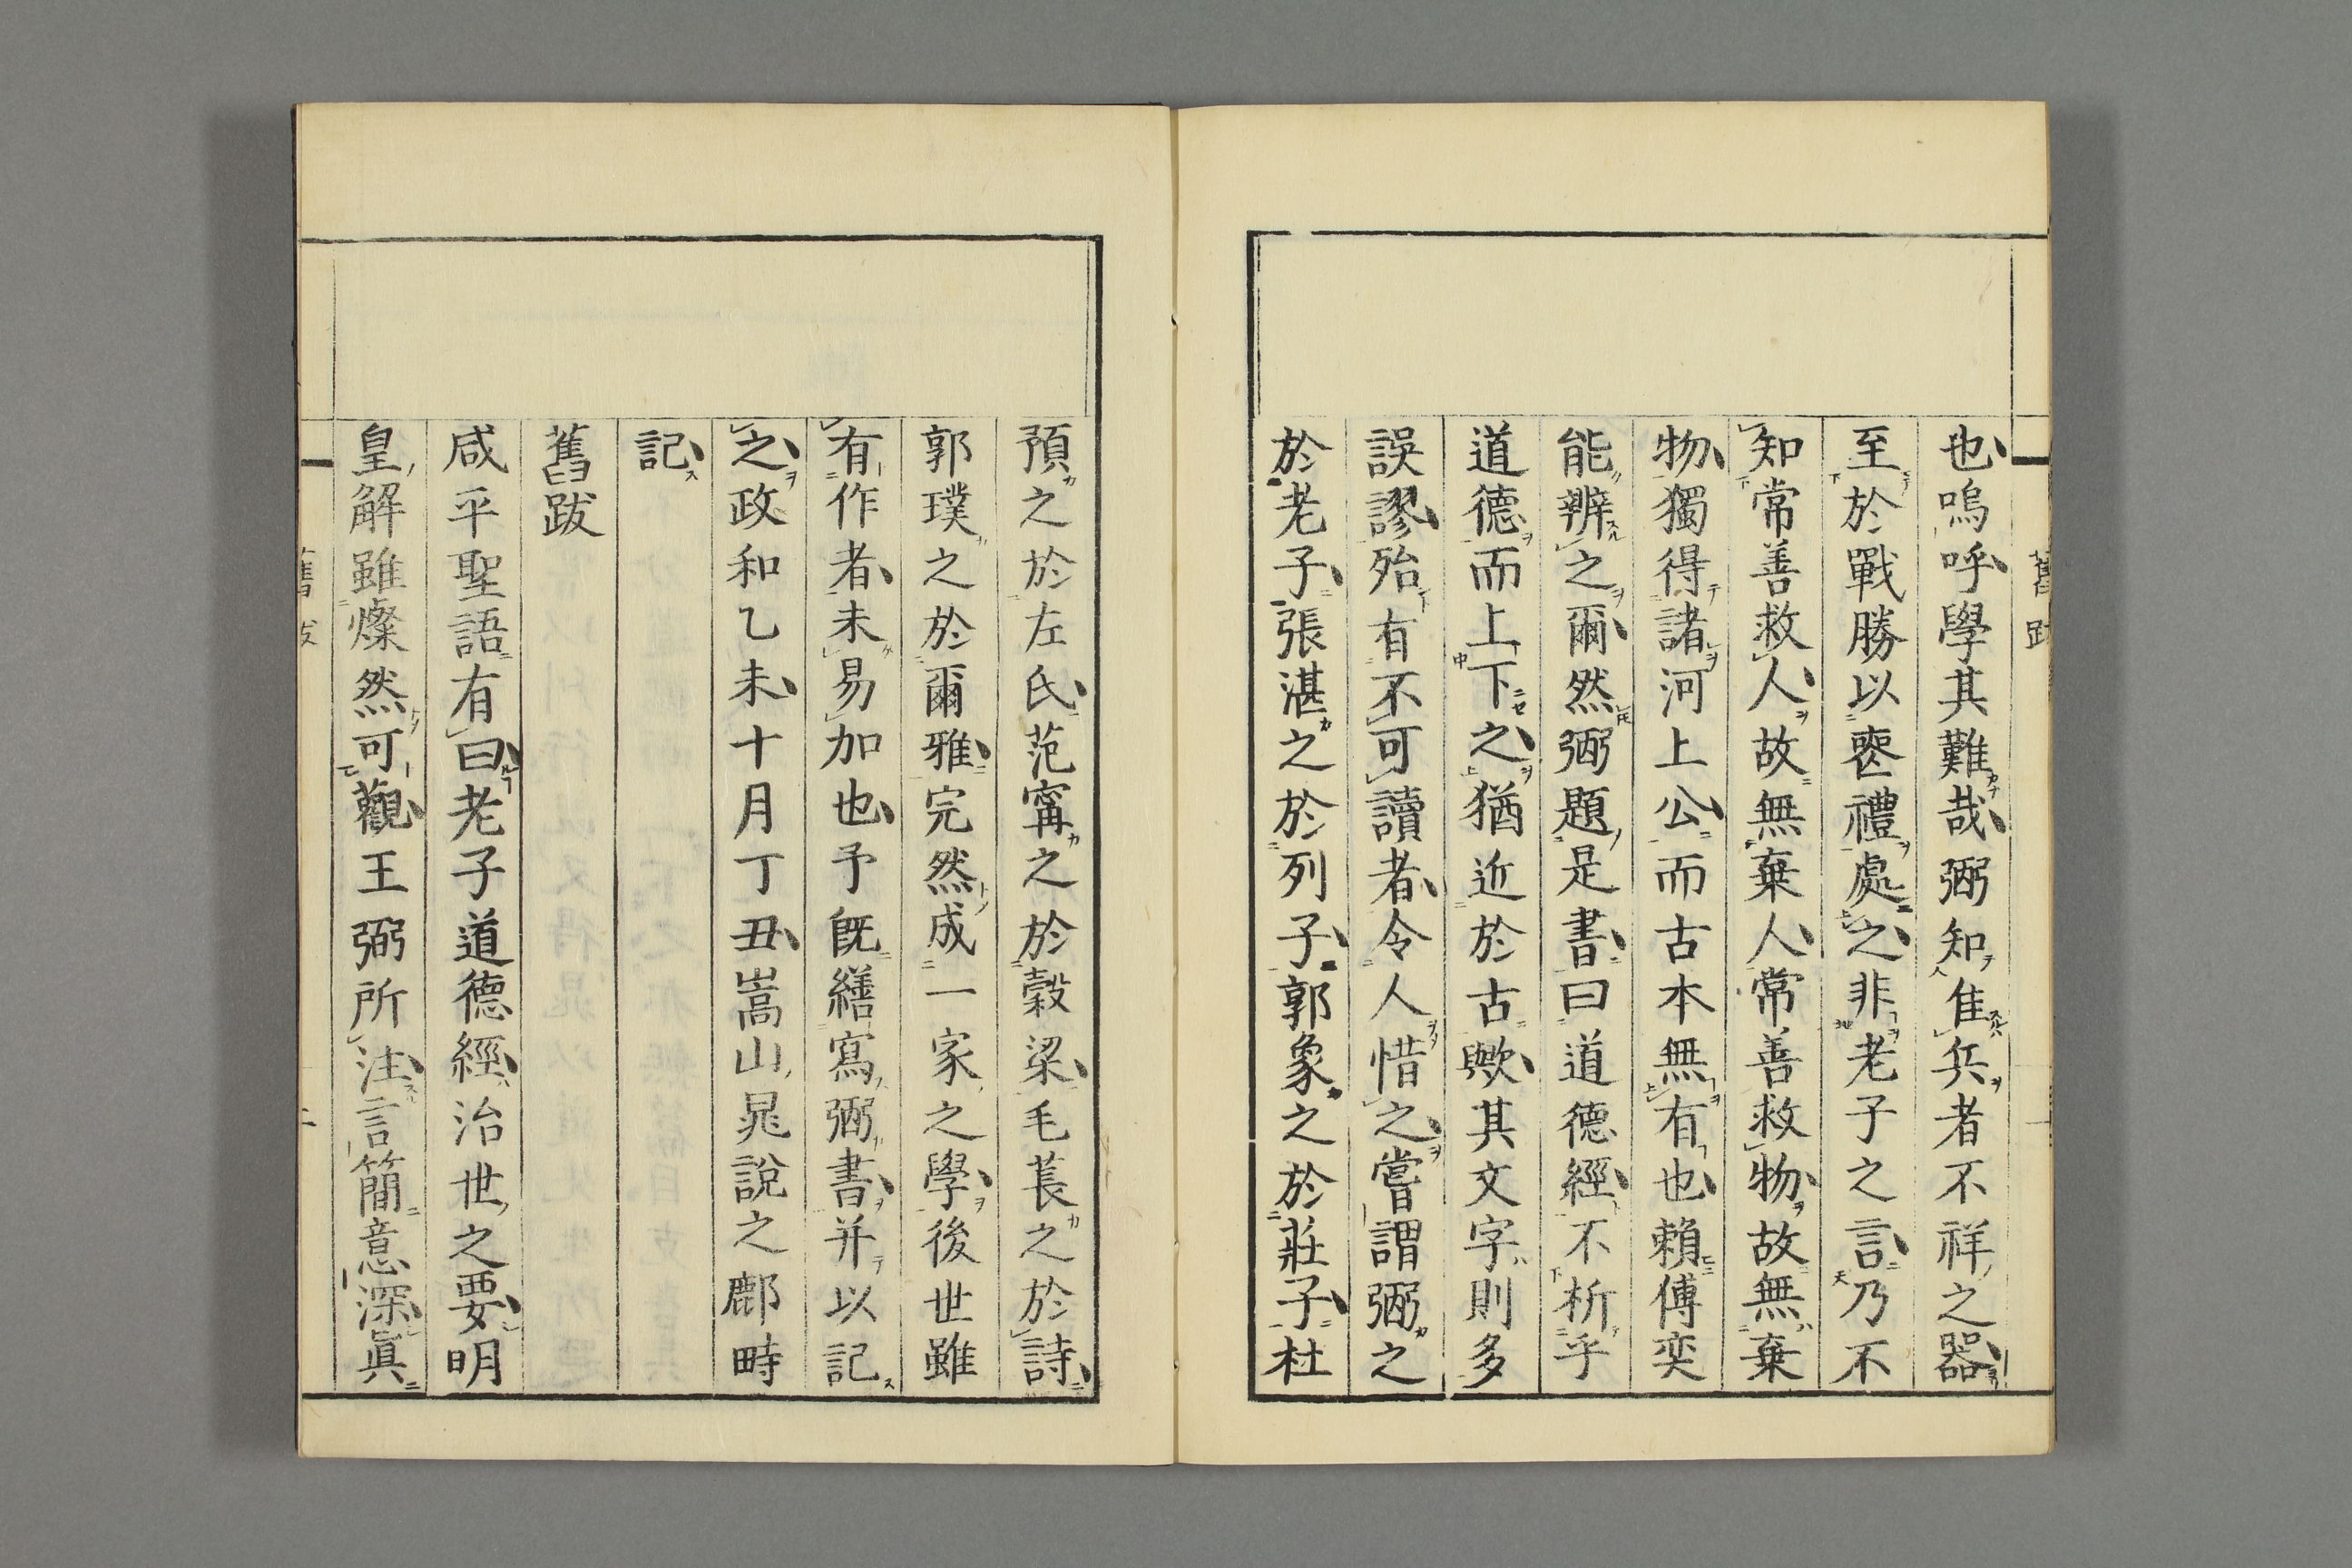 也嗚呼學其難哉弼知佳兵者不祥之器
至於戰勝以喪禮處之非老子之言乃不
知常善救人故無棄人常善救物故無棄
物獨得諸河上公而古本無有也賴傅奕
能辨之爾然弼題是書曰道德經不析乎
道德而上下之猶近於古歟其文字則多
誤謬殆有不可讀者令人惜之嘗謂弼之
於老子張湛之於列子郭象之於莊子杜
預之於左氏范寗之於穀梁毛萇之於詩
郭璞之於爾雅完然成一家之學後世雖
有作者未易加也予既繕寫弼書并以記
之政和乙未十月丁丑嵩山晁說之鄜畤
記
舊跋
咸平聖語有曰老子道德經治世之要明
皇解雖燦然可觀王弼所注言簡意深眞